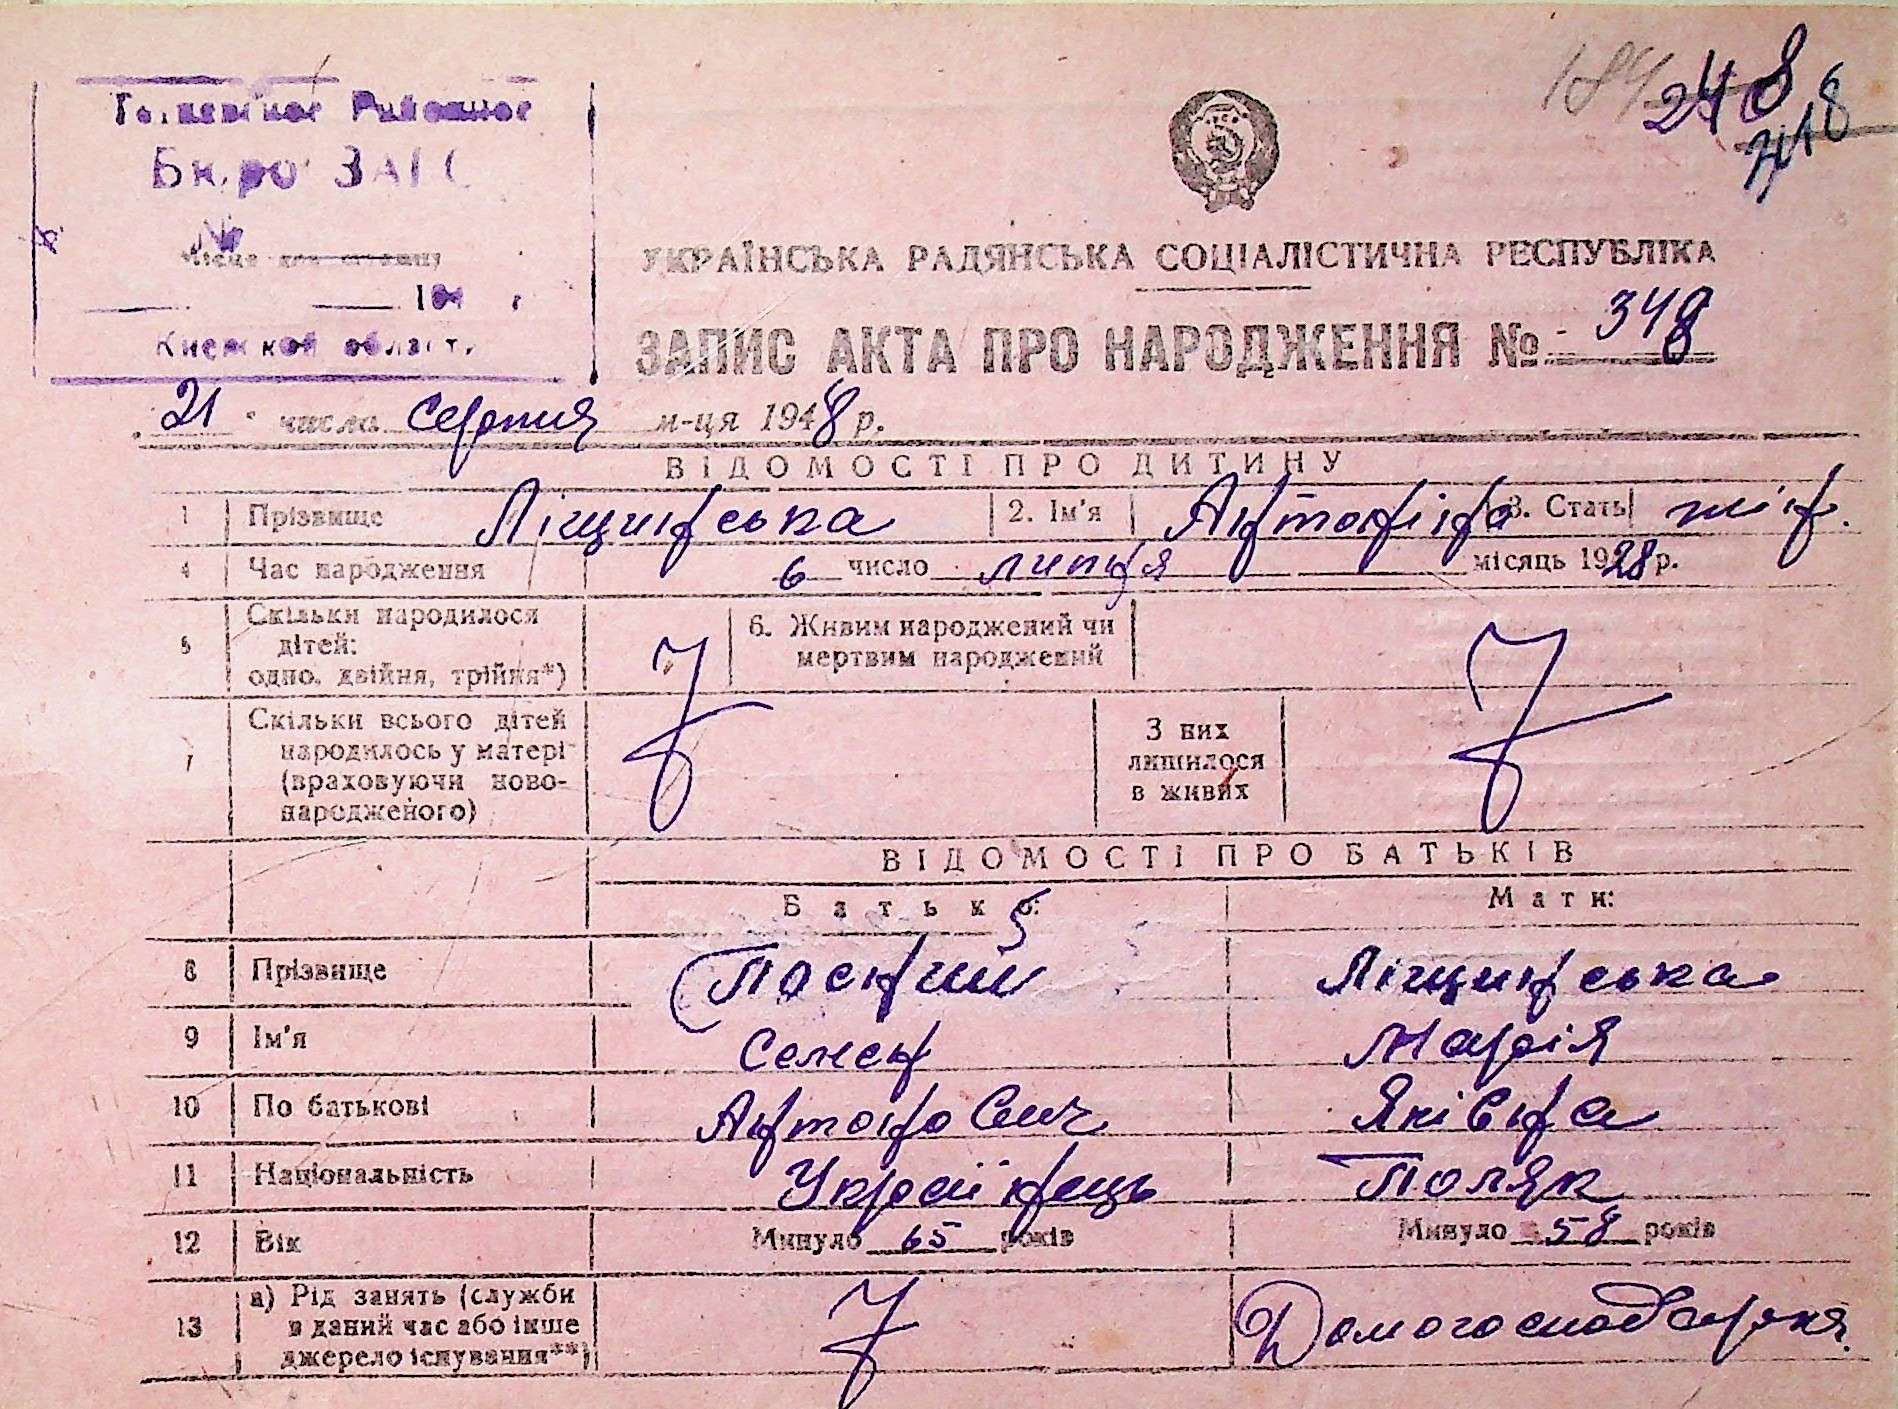 184 248
Районное
Бюро ЗАГС
194 г.
Киевской области
УКРАЇНСЬКА РАДЯНСЬКА СОЦІАЛІСТИЧНА РЕСПУБЛІКА
ЗАПИС АКТА ПРО НАРОДЖЕННЯ № 348
21 числа серпня м-ця 1948 р.
ВІДОМОСТІ ПРО ДИТИНУ
1 Прізвище Ліщинська 2. Ім'я Антоніна 3. Стать жін.
4 Час народження 6 число липня місяць 1928 р.
5 Скільки народилося дітей: одно, двійня, трійня*) 6. Живим народжений чи мертвим народжений
7 Скільки всього дітей народилось у матері (враховуючи ново-народженого) З них лишилося в живих
ВІДОМОСТІ ПРО БАТЬКІВ
Батько: Мати:
8 Прізвище Ліщинська
9 Ім'я Семен Марія
10 По батькові Антонович Яківна
11 Національність Українець Поляк
12 Вік Минуло 65 років Минуло 58 років
13 а) Рід занять (служби в даний час або інше джерело існування**) Домогосподарка